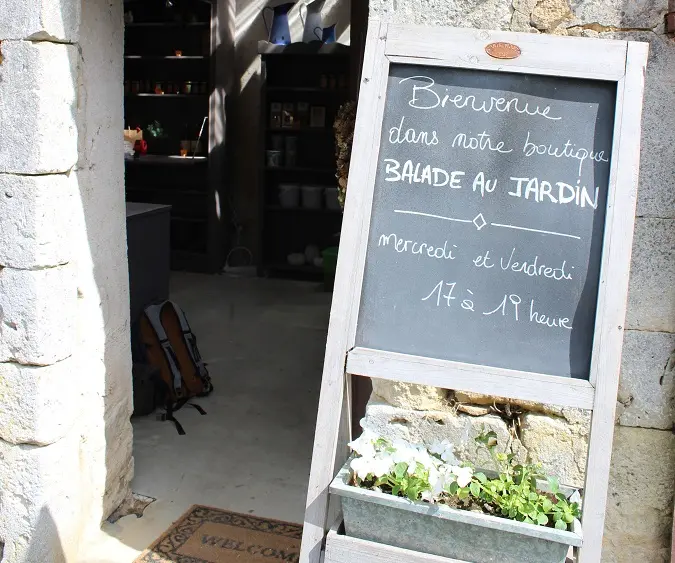 Bienvenue
dans notre boutique
BALADE AU JARDIN
mercredi et Vendredi
17 à 19 heure
WELCOME